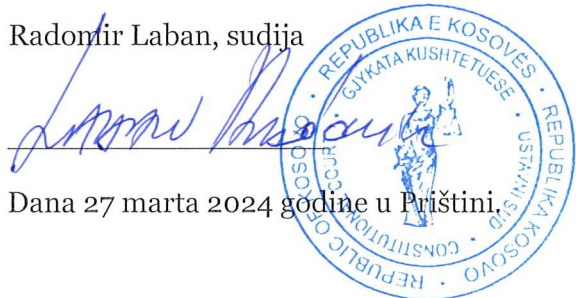 Radomir Laban, sudija
Dana 27 marta 2024 godine u Prištini.
REPUBLIKA E KOSOVËS · REPUBLIKA KOSOVO · REPUBLIC OF KOSOVO
GJYKATA KUSHTETUESE · USTAVNI SUD · CONSTITUTIONAL COURT